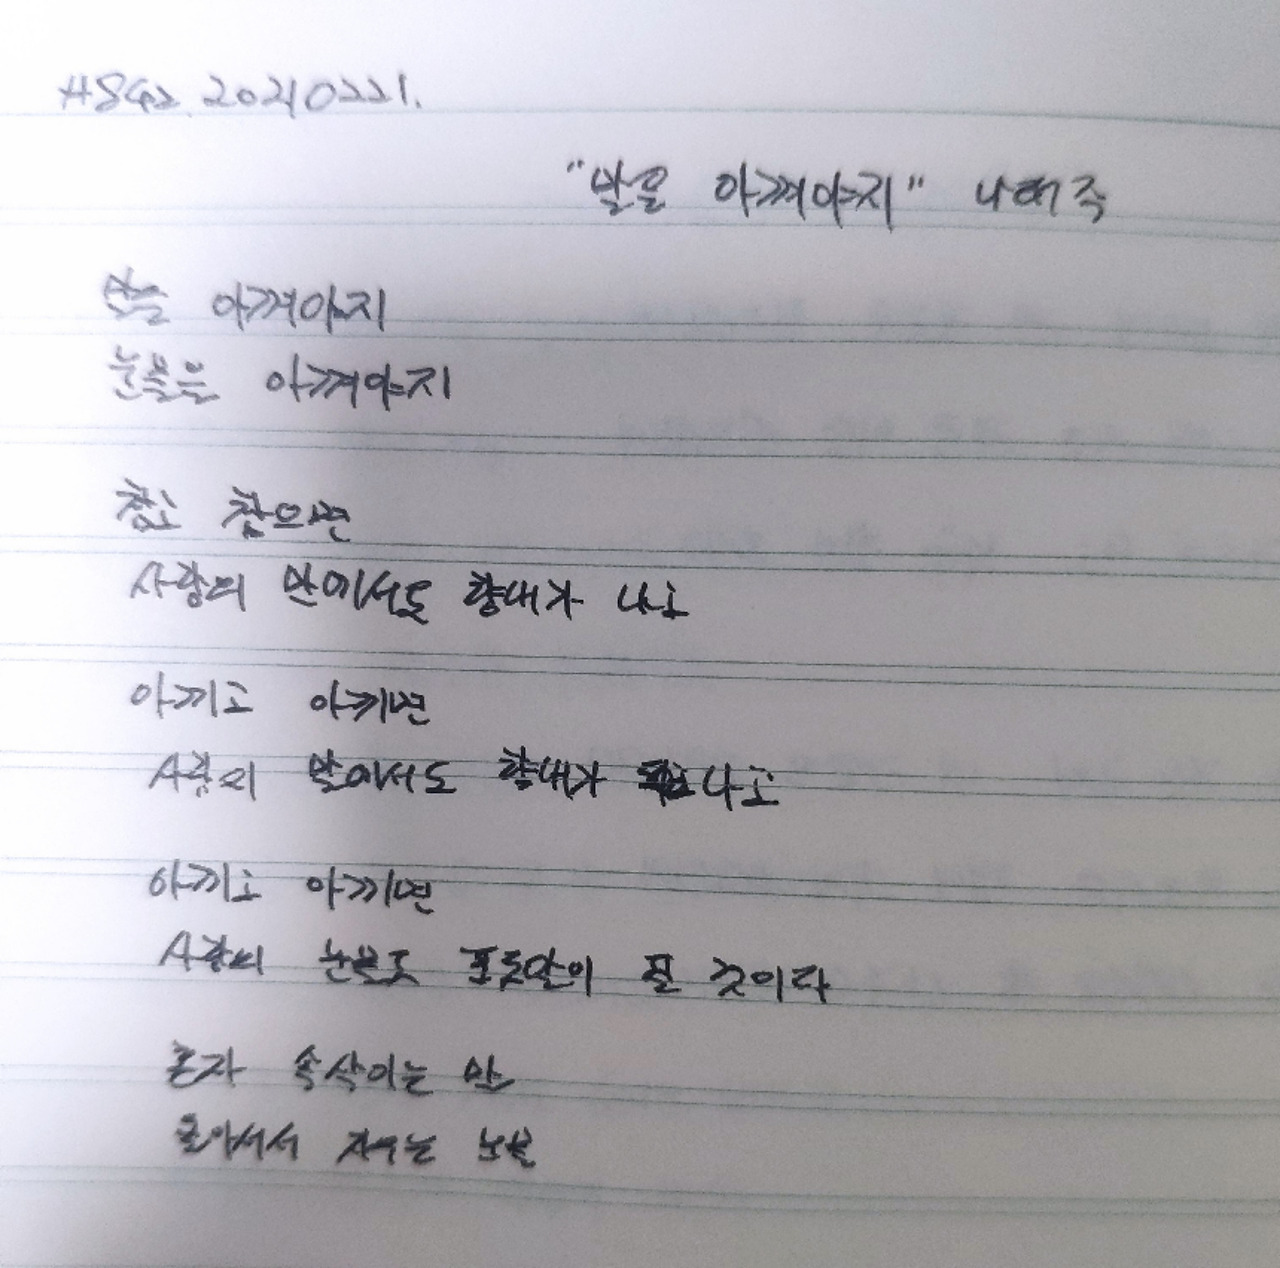 HSG2 20210221.
"말을 아껴야지" 나태주
말을 아껴야지
눈물을 아껴야지
참고 참으면
사람의 말에서도 향내가 나고
아끼고 아끼면
사람의 말에서도 향내가 나고
아끼고 아끼면
사람의 눈물도 포도알이 될 것이라
혼자 속삭이는 말
돌아서서 지우는 눈물